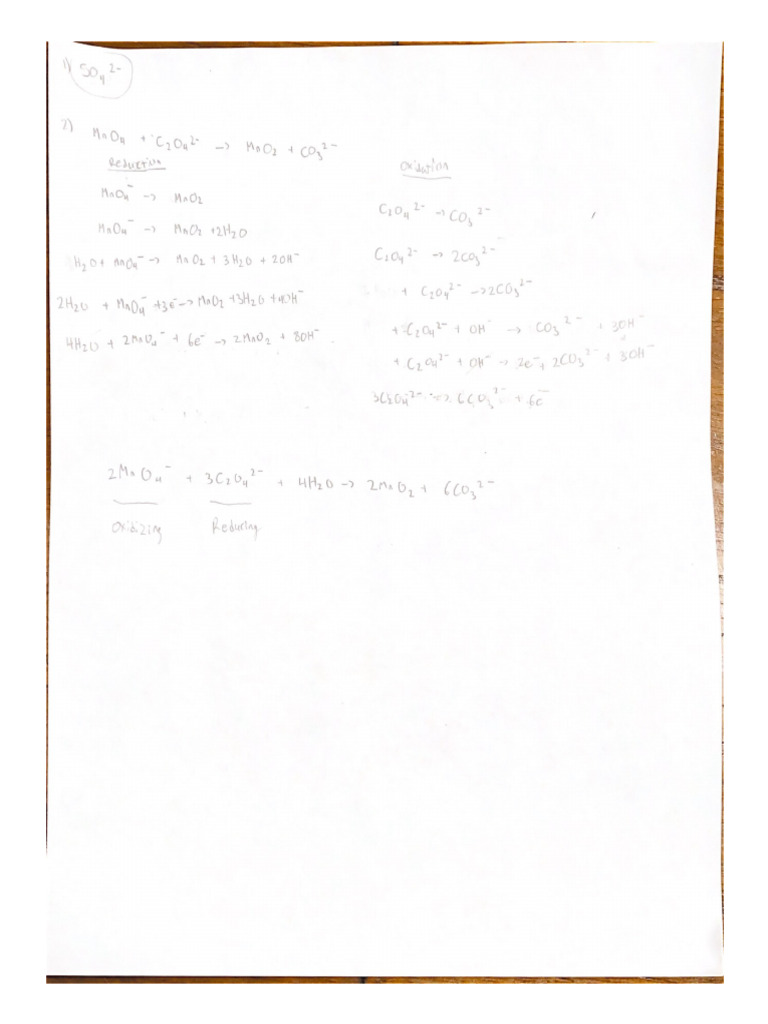 1) SO₄²⁻
2) MnO₄ + C₂O₄²⁻ → MnO₂ + CO₃²⁻
Reduction
MnO₄⁻ → MnO₂
MnO₄⁻ → MnO₂ + 2H₂O
H₂O + MnO₄⁻ → MnO₂ + 3H₂O + 2OH⁻
2H₂O + MnO₄⁻ + 3e⁻ → MnO₂ + 3H₂O + 4OH⁻
4H₂O + 2MnO₄⁻ + 6e⁻ → 2MnO₂ + 8OH⁻
Oxidation
C₂O₄²⁻ → CO₃²⁻
C₂O₄²⁻ → 2CO₃²⁻
+ C₂O₄²⁻ → 2CO₃²⁻
+ C₂O₄²⁻ + OH⁻ → CO₃²⁻ + 3OH⁻
+ C₂O₄²⁻ + OH⁻ → 2e⁻ + 2CO₃²⁻ + 3OH⁻
3C2O₄²⁻ → 6CO₃²⁻ + 6e⁻
2MnO₄⁻ + 3C₂O₄²⁻ + 4H₂O → 2MnO₂ + 6CO₃²⁻
Oxidizing Reducing